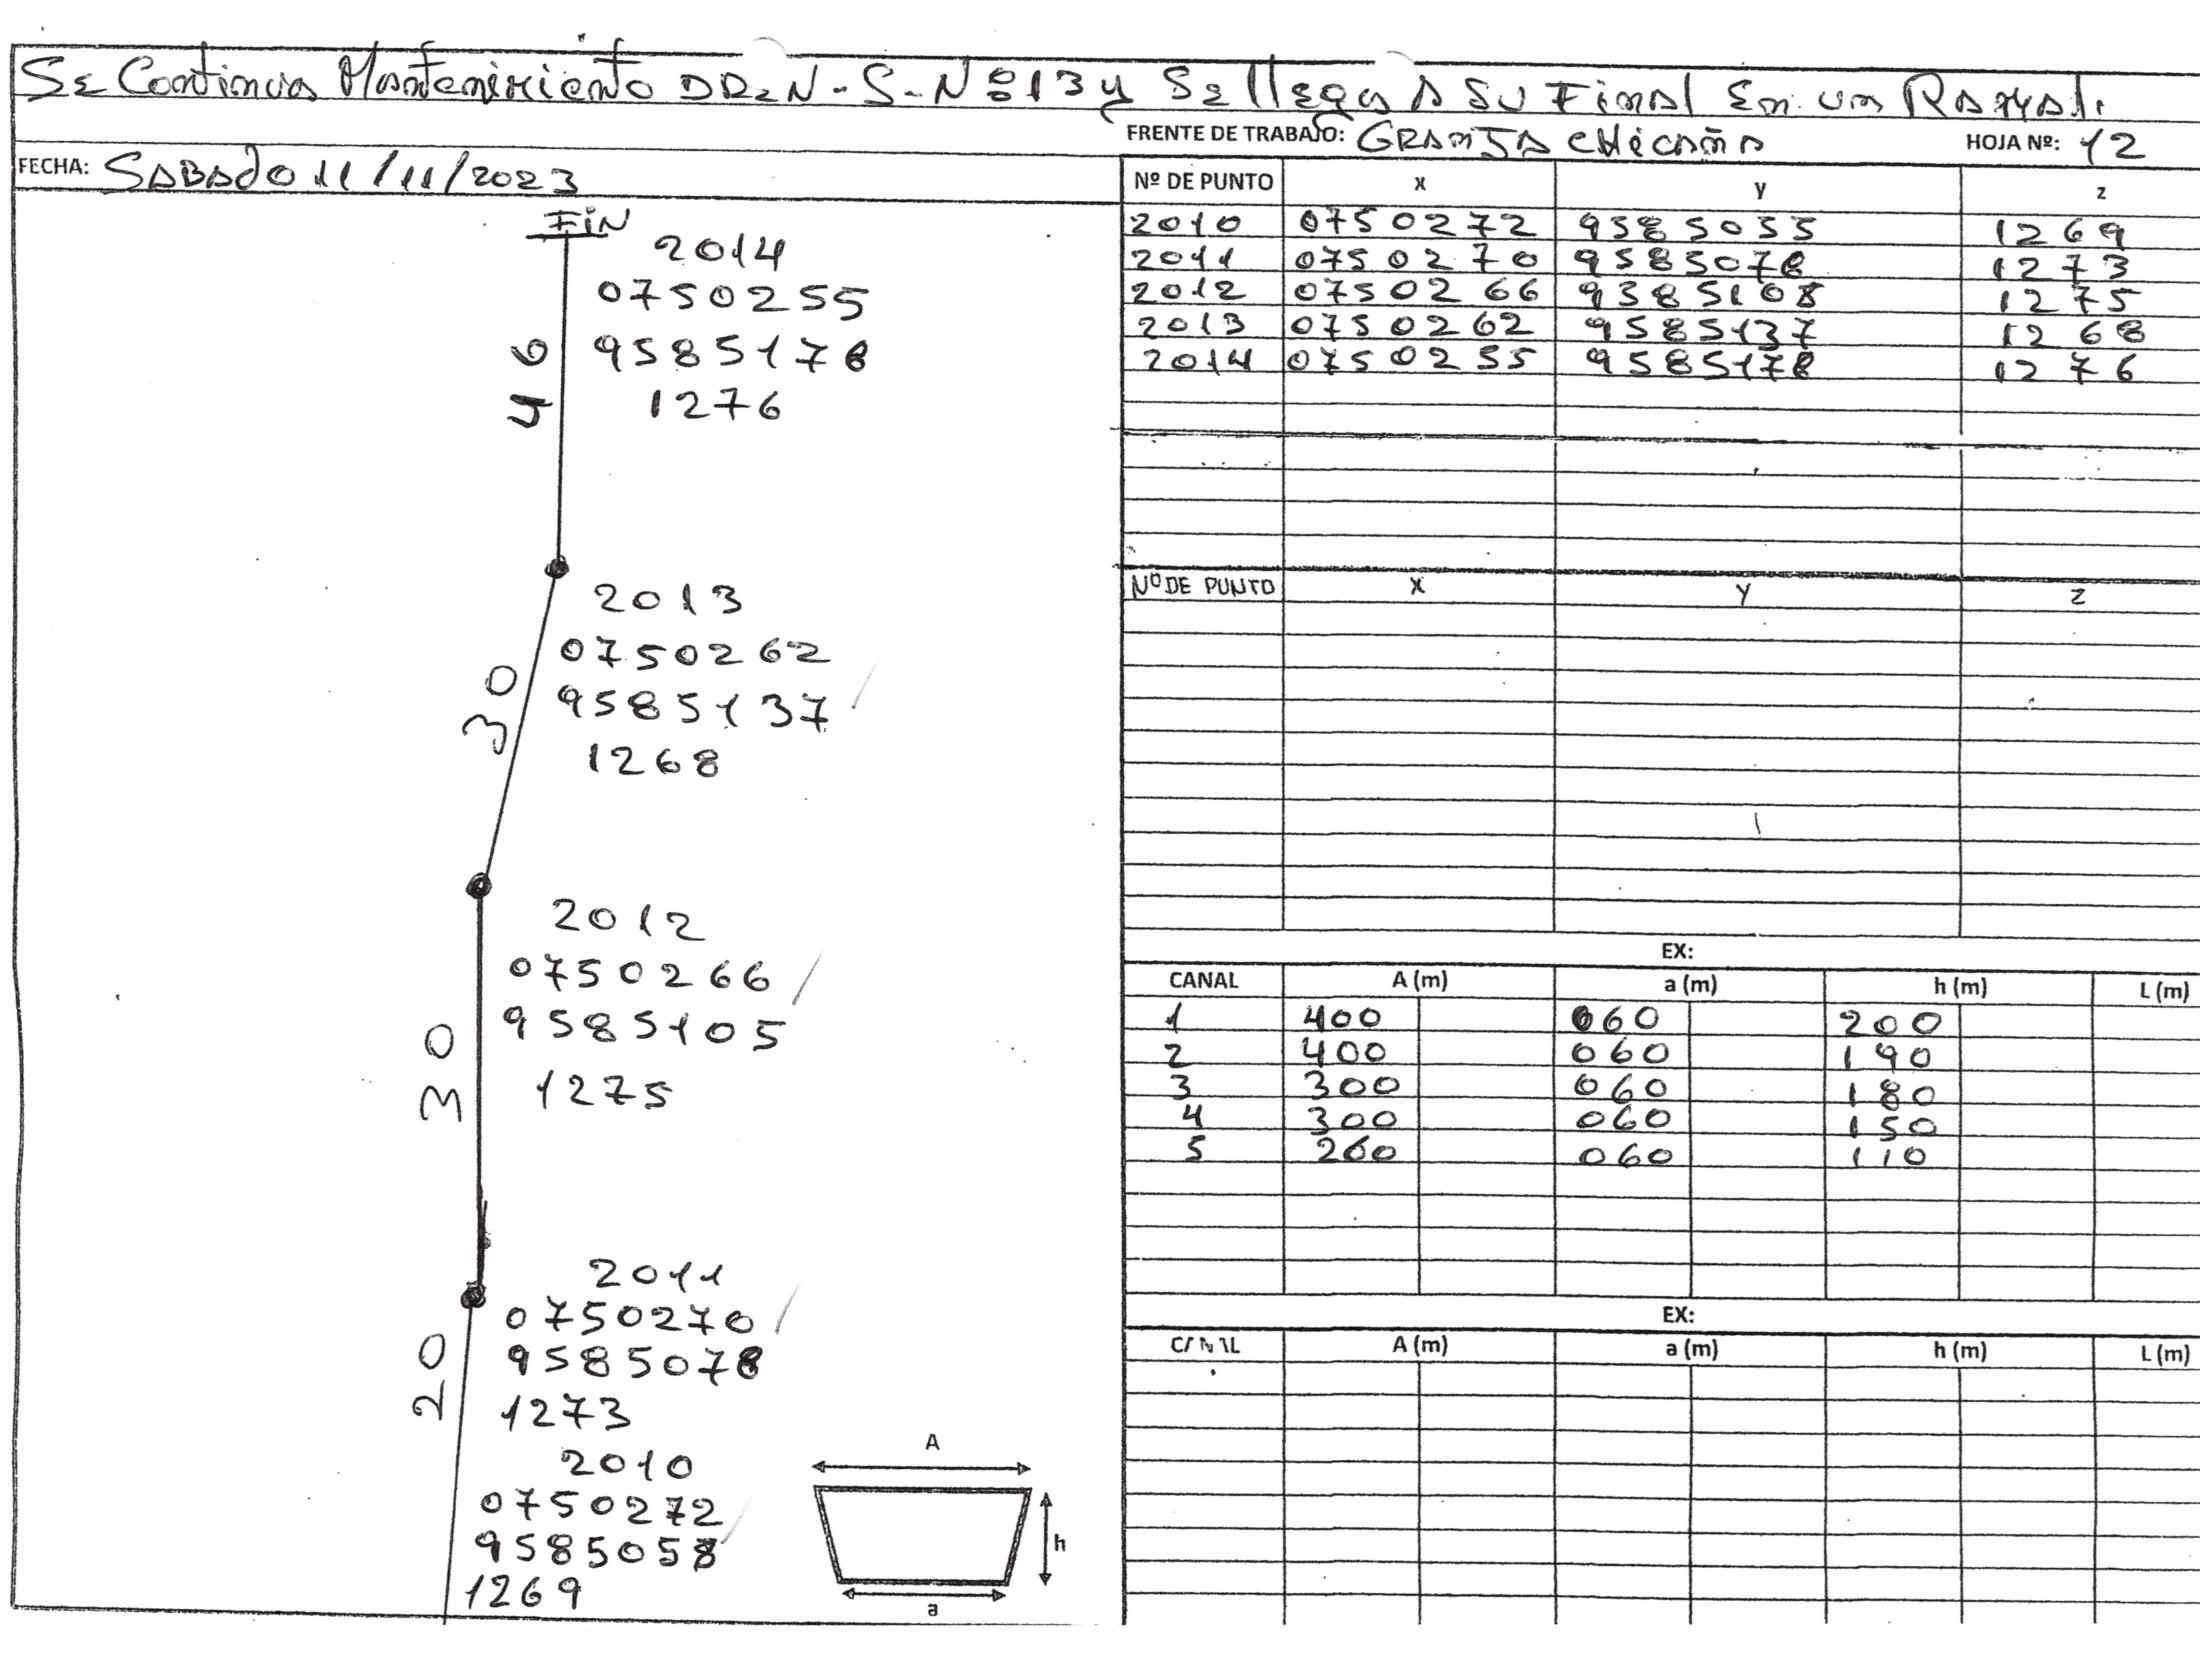 Se Continua Mantenimiento DRE N-S-Nº 13 y Se llega A Su Final En un Ramal.
FRENTE DE TRABAJO: GRANJA CHICAÑA
HOJA Nº: 12
FECHA: SABADO 11/11/2023
FIN
2014
0750255
9585178
1276
46
2013
0750262
9585137
1268
30
2012
0750266
9585105
1275
30
2011
0750270
9585078
1273
20
2010
0750272
9585058
1269
A
h
a
Nº DE PUNTO x y z
2010 0750272 9585055 1269
2011 0750270 9585078 1273
2012 0750266 9585108 1275
2013 0750262 9585137 1268
2014 0750255 9585178 1276
Nº DE PUNTO X Y Z
EX:
CANAL A (m) a (m) h (m) L (m)
1 400 060 200
2 400 060 190
3 300 060 180
4 300 060 150
5 260 060 110
EX:
CANAL A (m) a (m) h (m) L (m)